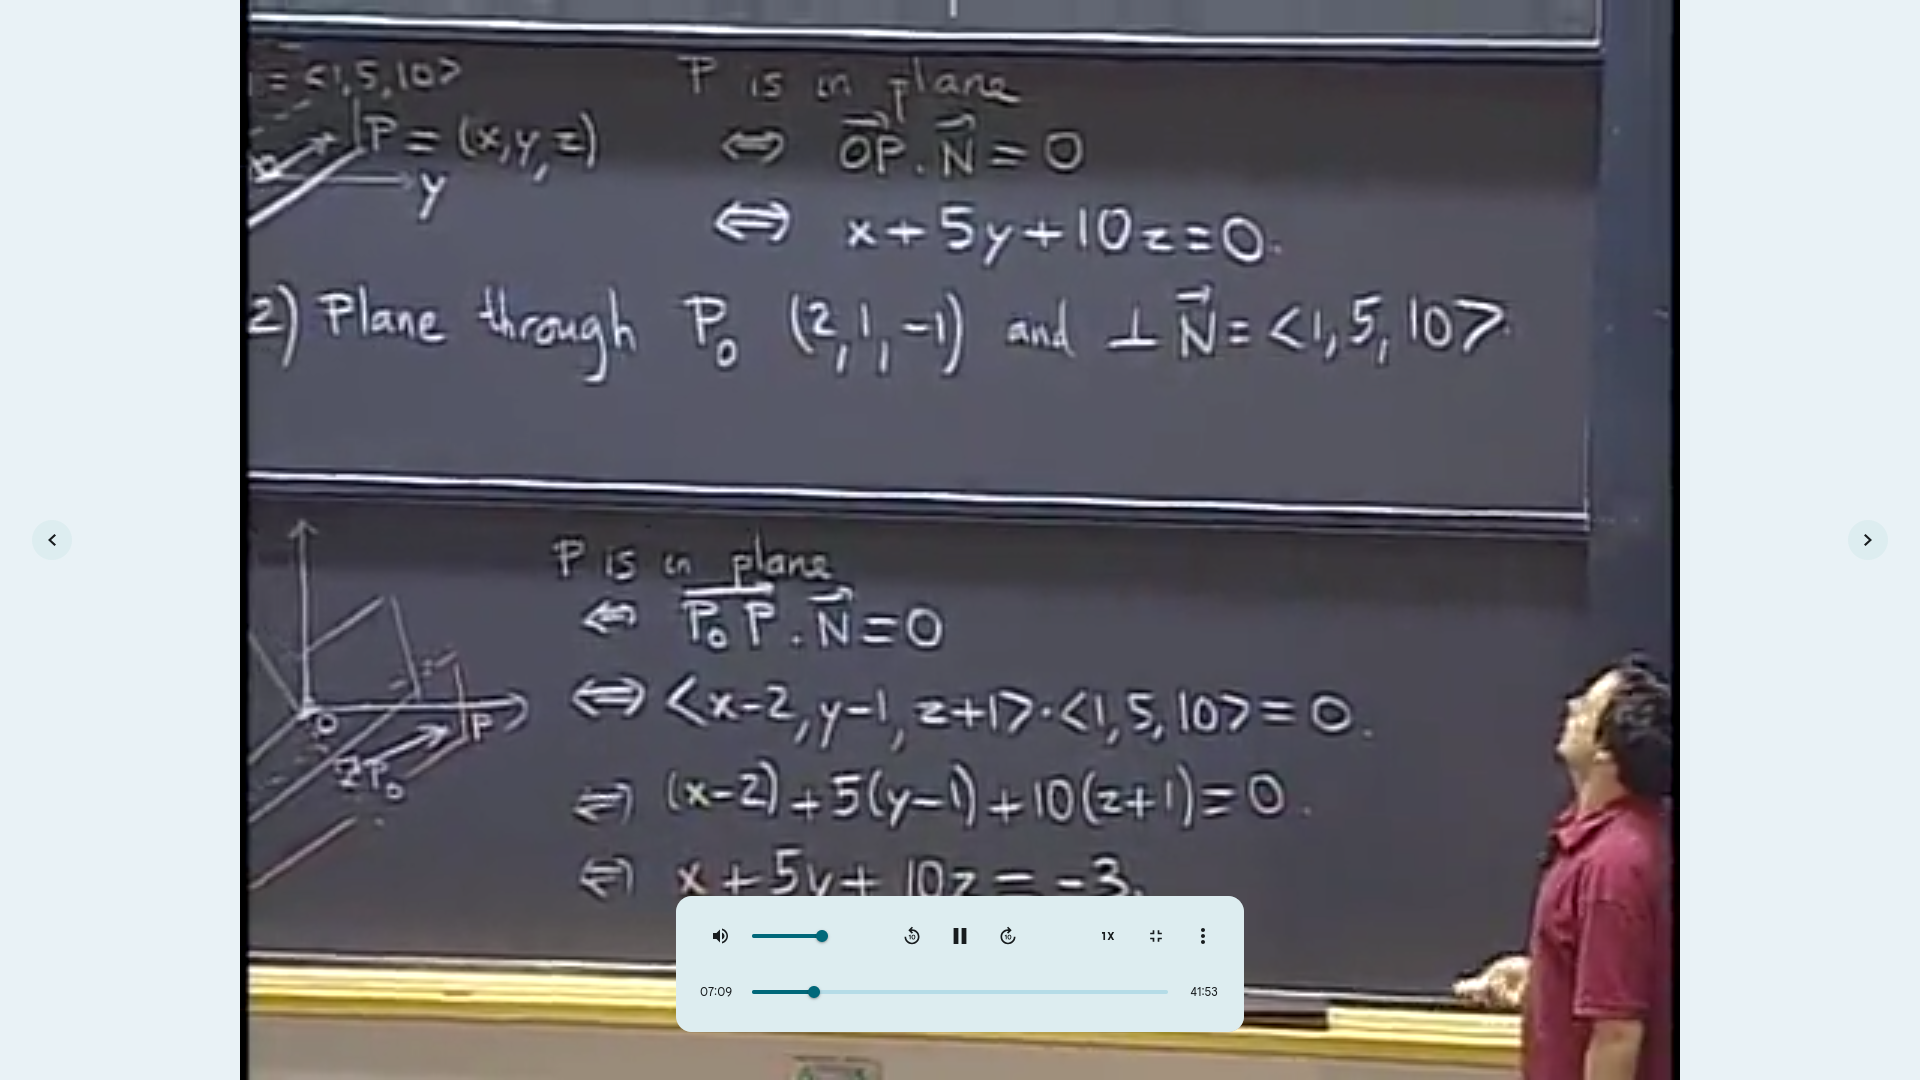 = <1,5,10>
P = (x,y,z)
y
P is in plane
⇔ OP⃗ . N⃗ = 0
⇔ x + 5y + 10z = 0.
2) Plane through P₀ (2,1,-1) and ⊥ N⃗ = <1,5,10>.
P is in plane
⇔ P₀P⃗ . N⃗ = 0
⇔ <x-2, y-1, z+1> · <1,5,10> = 0.
⇔ (x-2) + 5(y-1) + 10(z+1) = 0.
⇔ x + 5y + 10z = -3.
O
P
P₀
10
10
1X
07:09
41:53